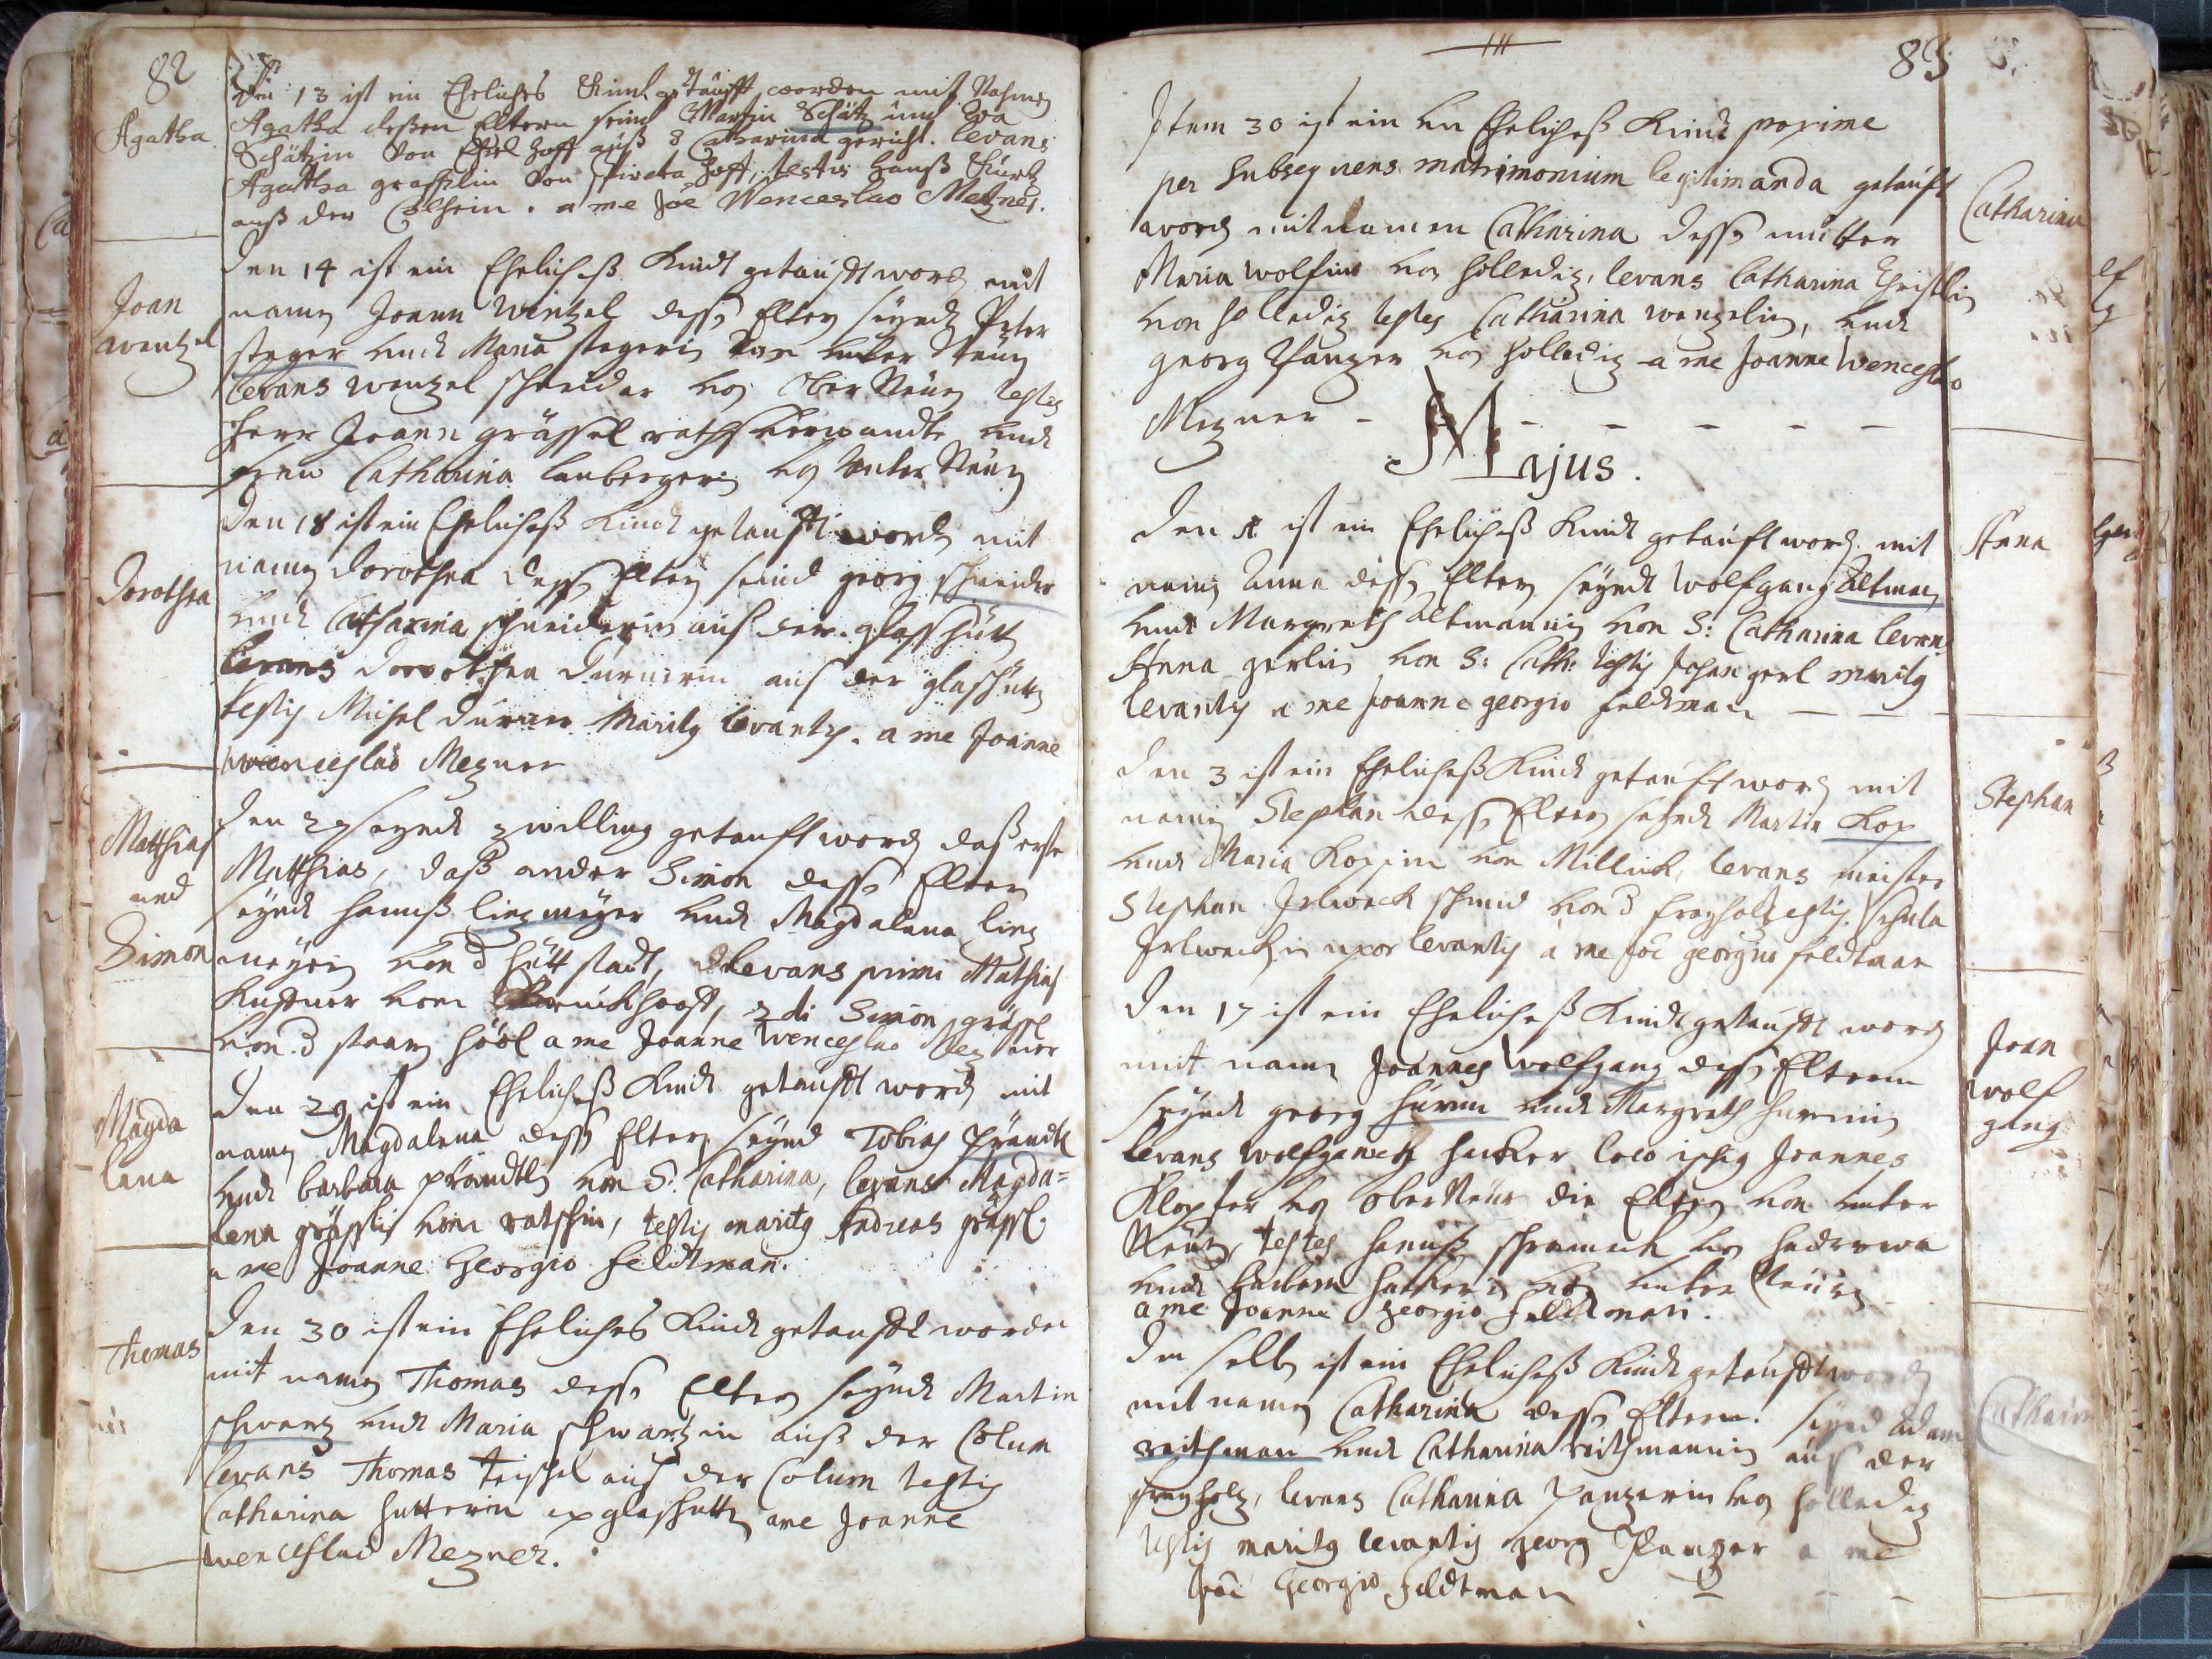 82
Agatha
Den 13 ist ein Eheliches Kind getaufft worden mit Nahmen
Agatha deßen Eltern seind Martin Schätz und Eva
Schätzin von hoff auß S Catharina gericht. levans
Agatha grasslin von hoff, testis Hanß
auß der Colheim. a me Joe Wenceslao Mezner.
Joan
wentzel
Den 14 ist ein Ehelicheß Kindt getaufft word mit
namen Joann Wentzel dess Eltern seyndt Peter
steger undt Maria stegerin von unter Neurn
levans wentzel schneider von Ober Neurn testes
Herr Joann grässel rathsverwandte undt
Frau Catharina laubergerin von Unter Neurn
Dorothea
Den 18 ist ein Ehelicheß Kindt getaufft word mit
namen Dorothea dess Eltern seind georg schneider
undt Catharina schneiderin auß der glasshütt
levans Dorothea Durnerin auß der glashütt
testis Michel Durner Maritus levantis. a me Joanne
Wenceslao Mezner
Matthias
und
Simon
Den 27 seyndt zwilling getaufft word daß erste
Matthias, daß ander Simon dess Eltern
seyndt Hannß linzmeyer undt Magdalena linz
meyrin von d hütt statt, levans primi Mathias
Kuffner von hoff, 2di Simon grässl
von d stanz höol a me Joanne Wenceslao Mezner
Magda
lena
Den 29 ist ein Ehelicheß Kindt getaufft word mit
namen Magdalena dess Eltern seynd Tobias Prändtl
undt barbara prändtlin von S. Catharina, levans Magda=
lena grässlin von ratschin, testis maritus Andreas grässl
a me Joanne Georgio Feldtman.
Thomas
Den 30 ist ein Eheliches Kindt getaufft worden
mit namen Thomas dess Eltern seyndt Martin
schwartz undt Maria schwartzin auß der Colum
levans Thomas teissel auß der Colum testis
Catharina hutterin ex glashütt a me Joanne
wenceslao Mezner.
83
Item 30 ist ein un Ehelicheß Kindt proxime
per subsequens matrimonium legitimanda getaufft
word mit namen Catharina dess mutter
Maria wolfin von holledig, levans Catharina Christlin
von holledig testes Catharina wenzelin, undt
georg Panzer von holledig a me Joanne Wenceslao
Mezner - - - - - -
Catharina
Majus.
Den 1 ist ein Ehelicheß Kindt getaufft word mit
namen Anna dess Eltern seyndt Wolfgang Altman
undt Margreth Altmannin von S: Catharina levans
Anna gerlin von S: Cath: testis Johan gerl maritus
levantis a me Joanne georgio feldtman
Anna
Den 3 ist ein Ehelicheß Kindt getaufft word mit
namen Stephan dess Eltern seyndt Martin Kop
undt Maria Koppin von Millick, levans meister
Stephan Irlweck schmid von d freyholz testis
Irlweckin uxor levantis a me Joe georgio feldtman
Stephan
Den 17 ist ein Ehelicheß Kindt getaufft word
mit namen Joannes Wolfgang dess Eltern
seyndt georg hürun undt Margreth hurnin
levans wolfganck hacker loco ipsius Joannes
Klopfer von Ober Neurn die Eltern von unter
Neurn, testes hanuß schrameck von hadrowa
undt barbara hackerin von unter Neurn
a me Joanne georgio feldtman.
Joan
wolf
gang
Den selben ist ein Ehelicheß Kindt getaufft word
mit namen Catharina dess Eltern seynd Adam
reithman undt Catharina reithmannin auß der
freyholz, levans Catharina panzerin von holledig
testis maritus levantis georg Panzer a me
Joe Georgio feldtman
Catharin